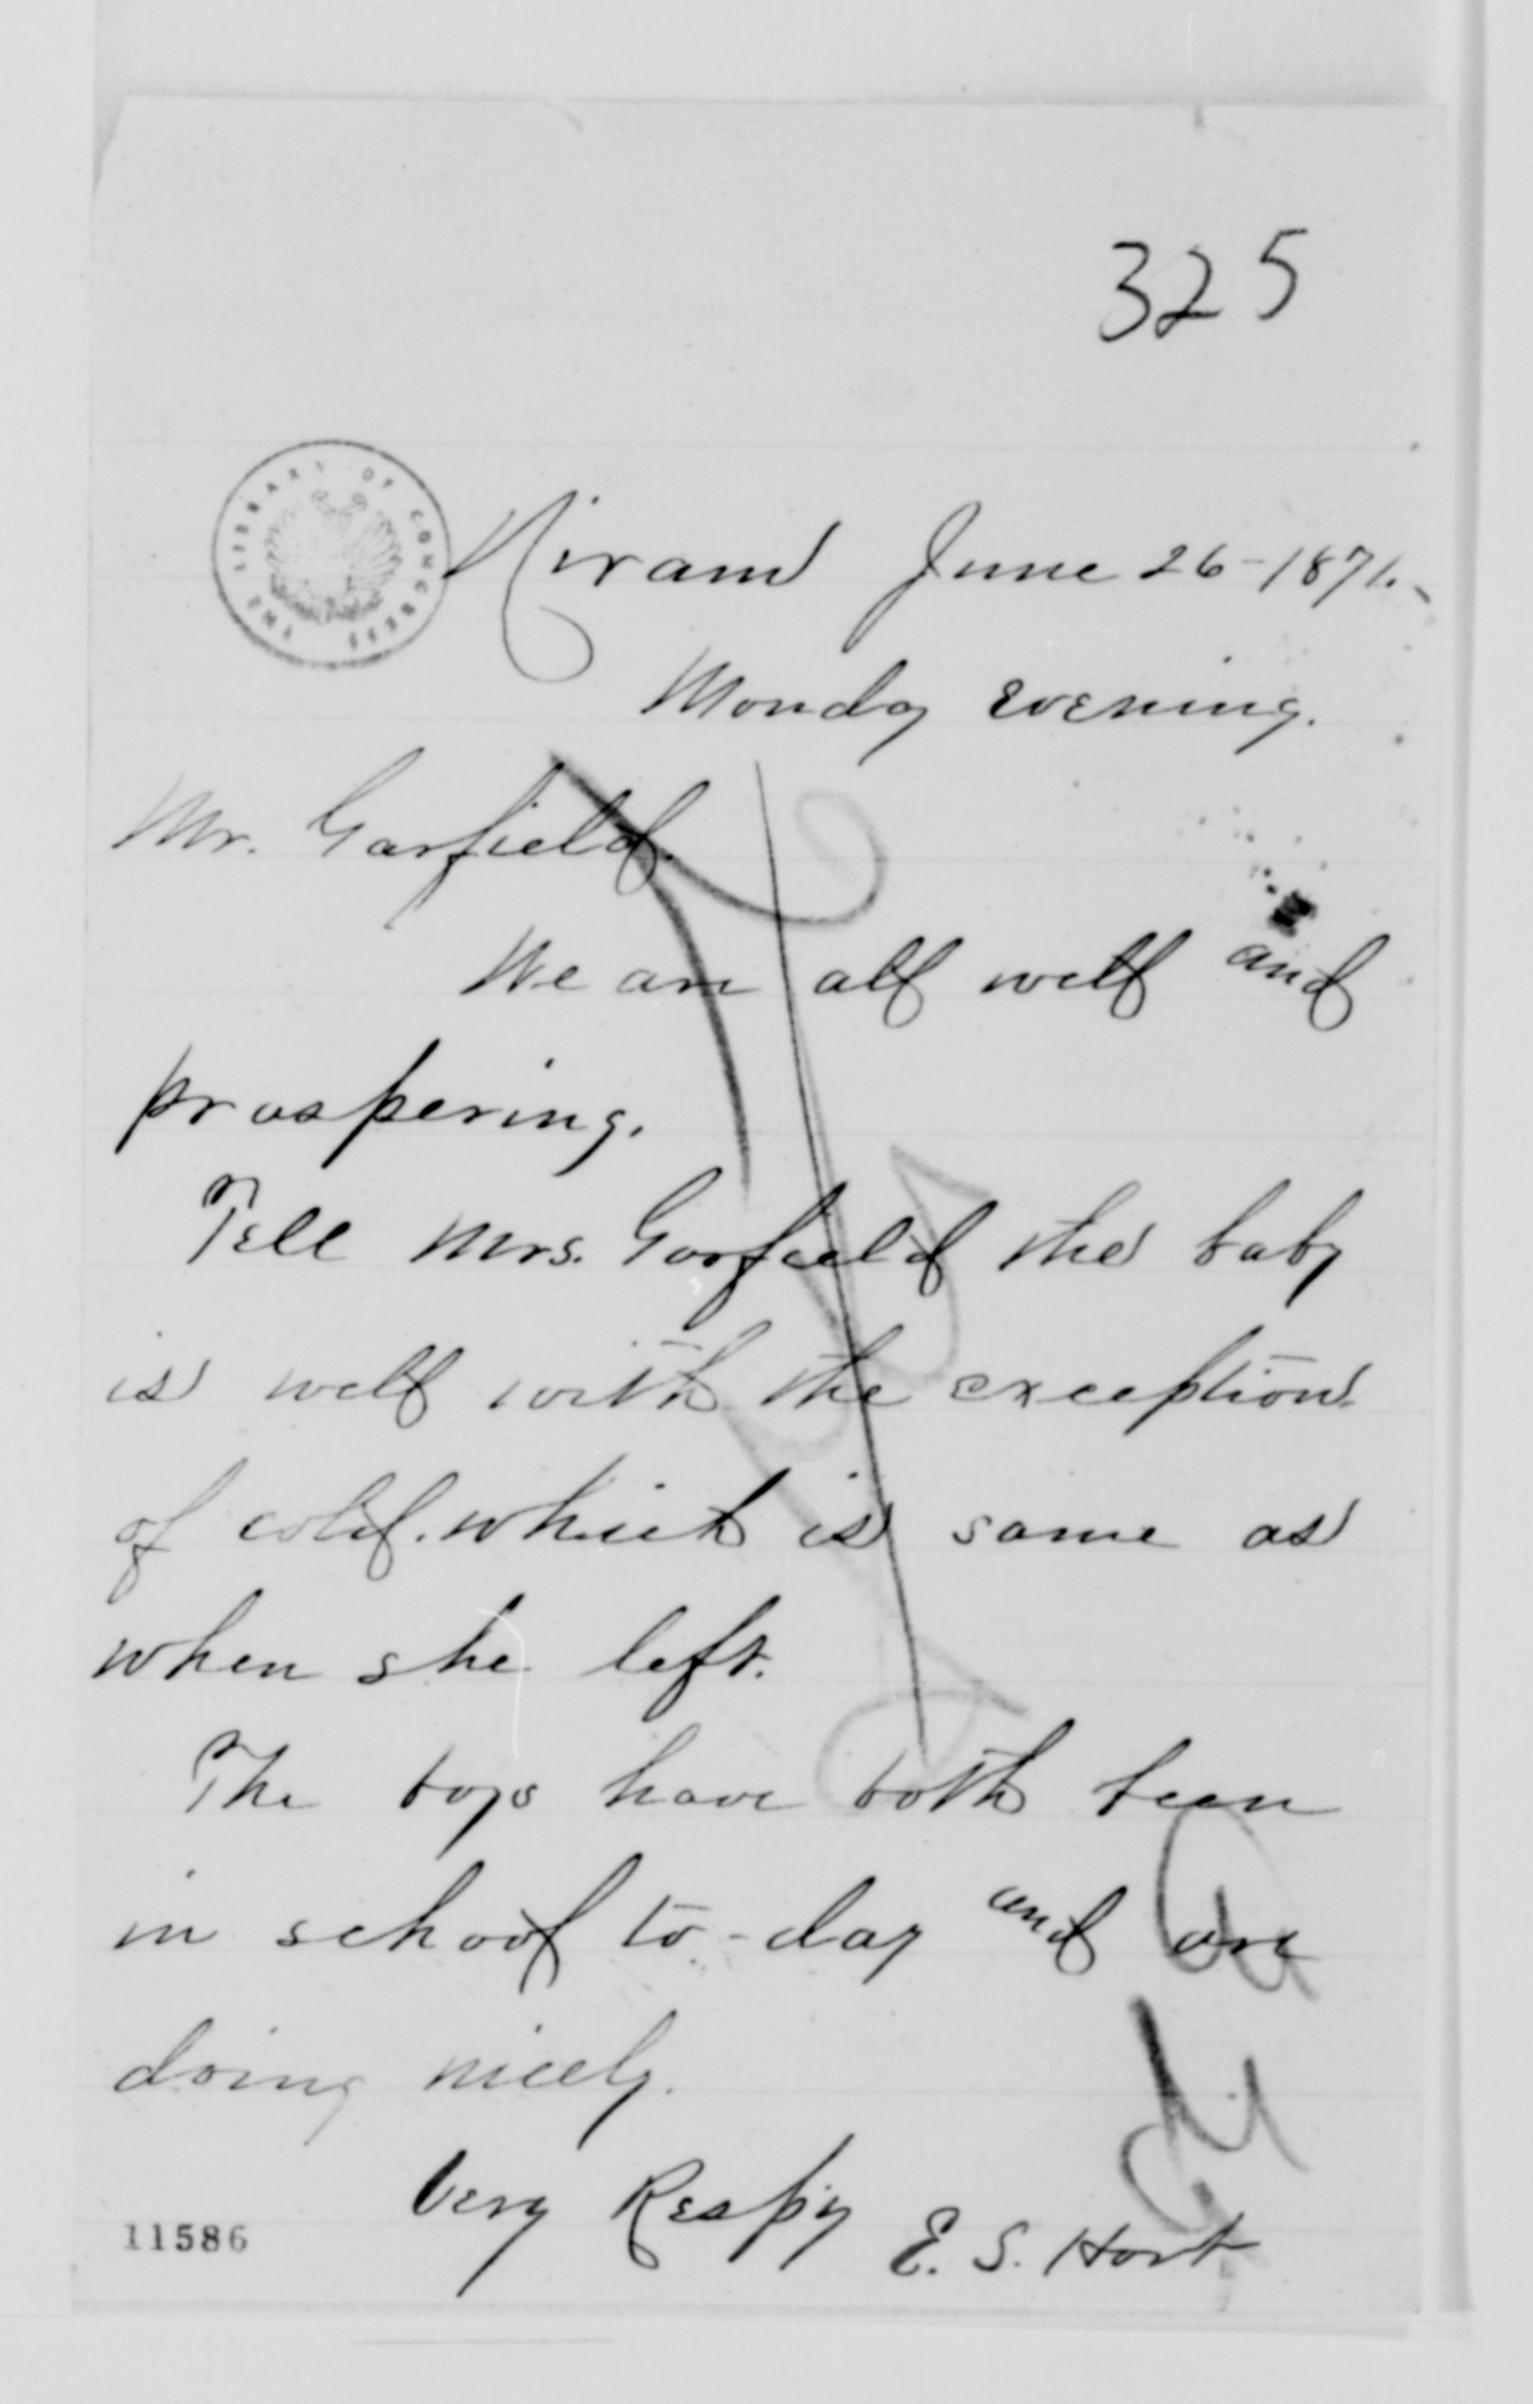 325
THE LIBRARY OF CONGRESS
Hiram June 26-1871.
Monday evening.
Mr. Garfield.
We are all well and
prospering.
Tell Mrs. Garfield the baby
is well with the exception
of cold. which is same as
when she left.
The boys have both been
in school to-day and are
doing nicely.
Very Respy
E. S. Hart
11586